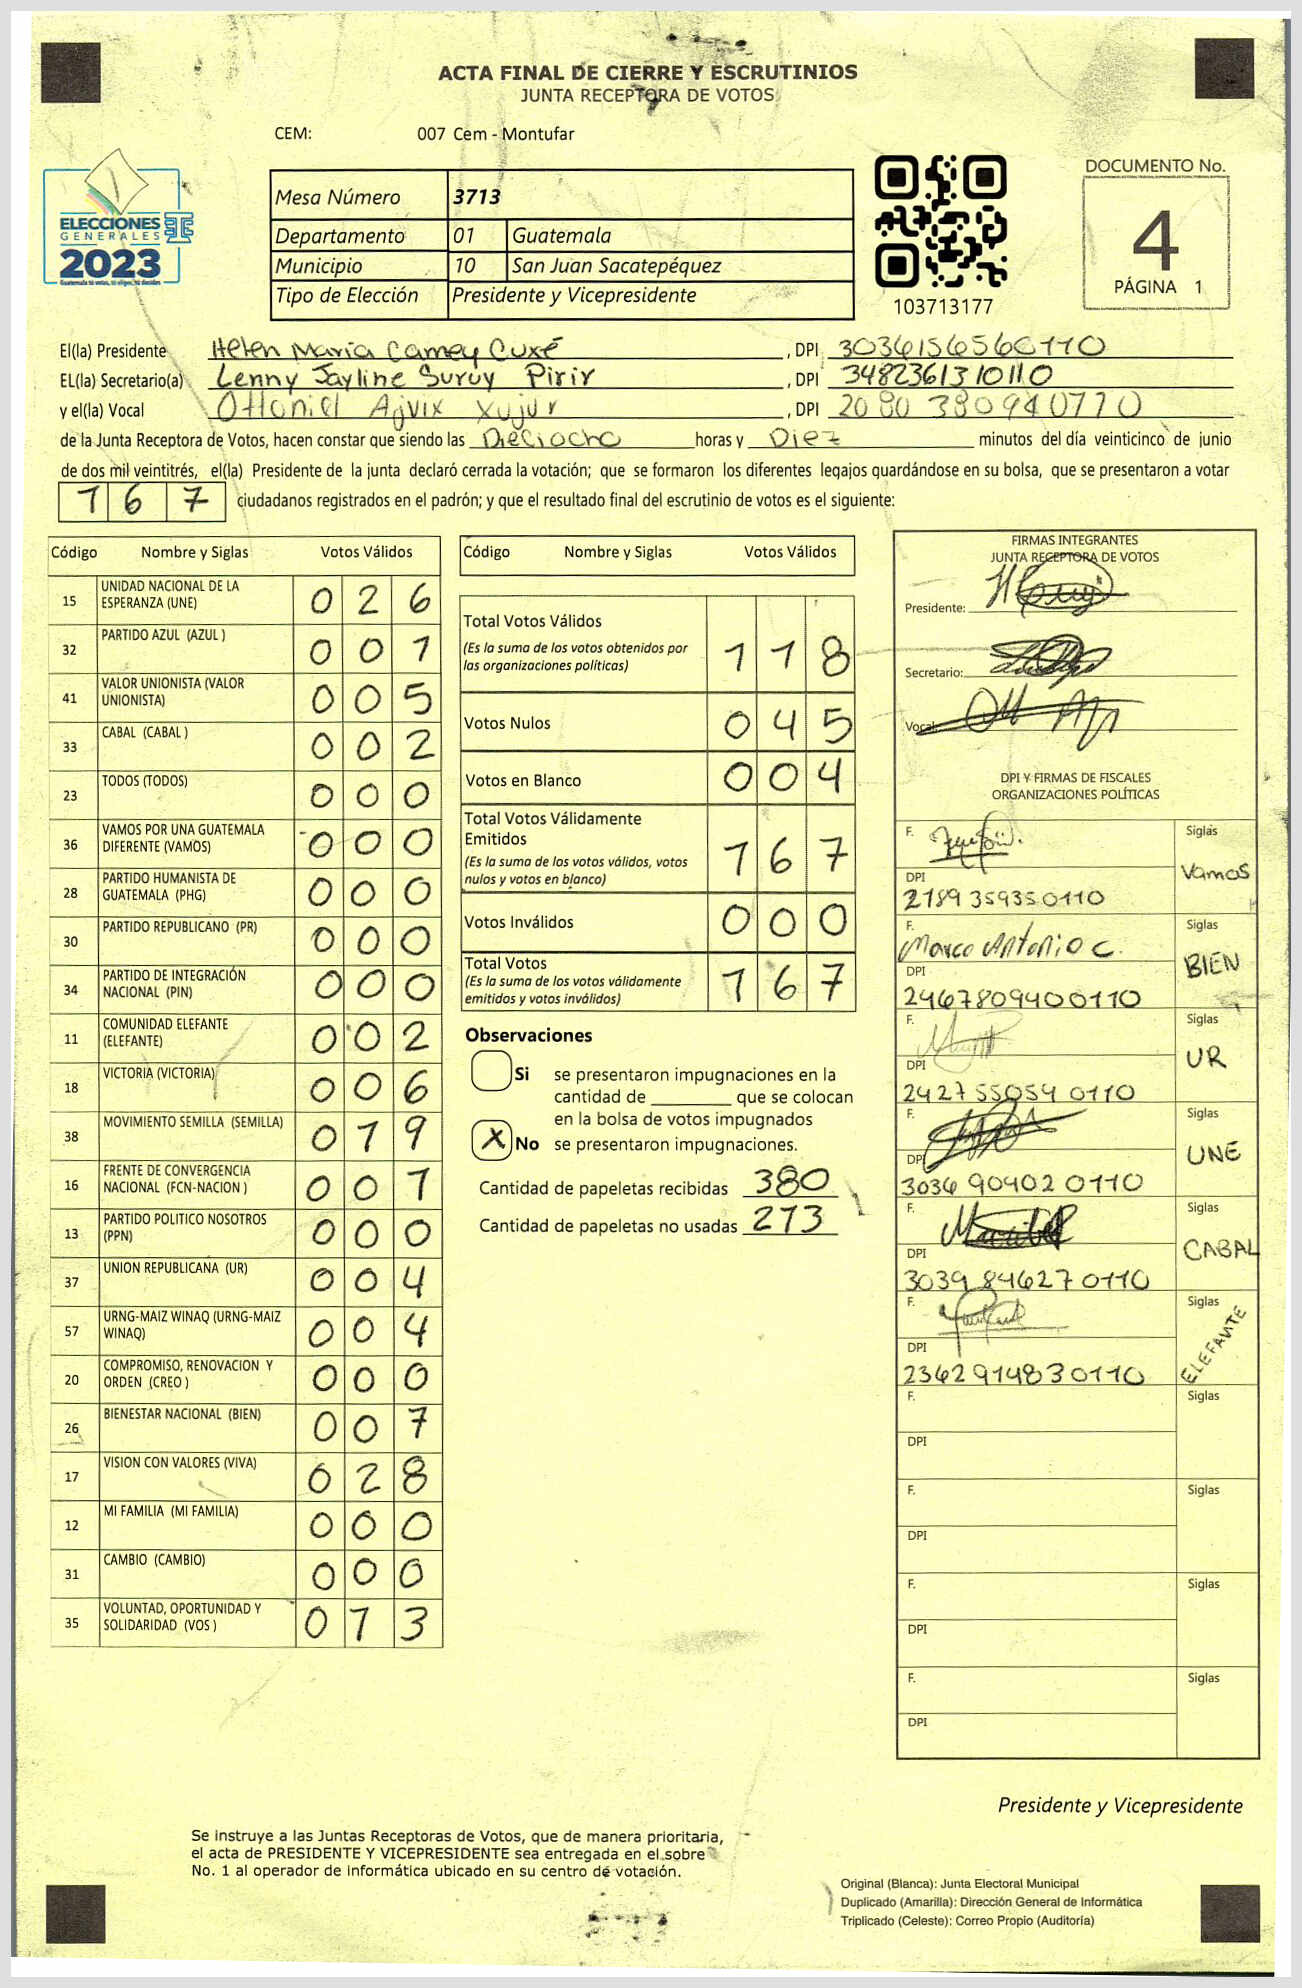 ACTA FINAL DE CIERRE Y ESCRUTINIOS
JUNTA RECEPTORA DE VOTOS
CEM: 007 Cem - Montufar
ELECCIONES
GENERALES
2023
Mesa Número 3713
Departamento 01 Guatemala
Municipio 10 San Juan Sacatepéquez
Tipo de Elección Presidente y Vicepresidente
103713177
DOCUMENTO No.
4
PÁGINA 1
El(la) Presidente Helen María Camey Cuxé, DPI 3036156560110
EL(la) Secretario(a) Lenny Jayline Suruy Pirir, DPI 3482361310110
y el(la) Vocal Ottoniel Ajvix Xujur, DPI 2080 380940110
de la Junta Receptora de Votos, hacen constar que siendo las Dieciocho horas y Diez minutos del día veinticinco de junio
de dos mil veintitrés, el(la) Presidente de la junta declaró cerrada la votación; que se formaron los diferentes legajos guardándose en su bolsa, que se presentaron a votar
167 ciudadanos registrados en el padrón; y que el resultado final del escrutinio de votos es el siguiente:
Código Nombre y Siglas Votos Válidos
15 UNIDAD NACIONAL DE LA ESPERANZA (UNE) 026
32 PARTIDO AZUL (AZUL ) 001
41 VALOR UNIONISTA (VALOR UNIONISTA) 005
33 CABAL (CABAL ) 002
23 TODOS (TODOS) 000
36 VAMOS POR UNA GUATEMALA DIFERENTE (VAMOS) 000
28 PARTIDO HUMANISTA DE GUATEMALA (PHG) 000
30 PARTIDO REPUBLICANO (PR) 000
34 PARTIDO DE INTEGRACIÓN NACIONAL (PIN) 000
11 COMUNIDAD ELEFANTE (ELEFANTE) 002
18 VICTORIA (VICTORIA) 006
38 MOVIMIENTO SEMILLA (SEMILLA) 019
16 FRENTE DE CONVERGENCIA NACIONAL (FCN-NACION ) 001
13 PARTIDO POLITICO NOSOTROS (PPN) 000
37 UNION REPUBLICANA (UR) 004
57 URNG-MAIZ WINAQ (URNG-MAIZ WINAQ) 004
20 COMPROMISO, RENOVACION Y ORDEN (CREO ) 000
26 BIENESTAR NACIONAL (BIEN) 007
17 VISION CON VALORES (VIVA) 028
12 MI FAMILIA (MI FAMILIA) 000
31 CAMBIO (CAMBIO) 000
35 VOLUNTAD, OPORTUNIDAD Y SOLIDARIDAD (VOS ) 013
Código Nombre y Siglas Votos Válidos
Total Votos Válidos 118
(Es la suma de los votos obtenidos por
las organizaciones políticas)
Votos Nulos 045
Votos en Blanco 004
Total Votos Válidamente
Emitidos 167
(Es la suma de los votos válidos, votos
nulos y votos en blanco)
Votos Inválidos 000
Total Votos 167
(Es la suma de los votos válidamente
emitidos y votos inválidos)
Observaciones
Si se presentaron impugnaciones en la
cantidad de ________ que se colocan
en la bolsa de votos impugnados
X No se presentaron impugnaciones.
Cantidad de papeletas recibidas 380
Cantidad de papeletas no usadas 213
FIRMAS INTEGRANTES
JUNTA RECEPTORA DE VOTOS
Presidente:
Secretario:
Vocal:
DPI Y FIRMAS DE FISCALES
ORGANIZACIONES POLÍTICAS
F. Siglas
Vamos
DPI
2789 359350110
F. Marco Antonio C. Siglas
BIEN
DPI
2467809400110
F. Siglas
UR
DPI
2427 55054 0110
F. Siglas
UNE
DPI
3036 90402 0110
F. Siglas
CABAL
DPI
3039 84627 0110
F. Siglas
ELEFANTE
DPI
2362914830110
F. Siglas
DPI
F. Siglas
DPI
F. Siglas
DPI
F. Siglas
DPI
Presidente y Vicepresidente
Se instruye a las Juntas Receptoras de Votos, que de manera prioritaria,
el acta de PRESIDENTE Y VICEPRESIDENTE sea entregada en el sobre
No. 1 al operador de informática ubicado en su centro de votación.
Original (Blanca): Junta Electoral Municipal
Duplicado (Amarilla): Dirección General de Informática
Triplicado (Celeste): Correo Propio (Auditoría)